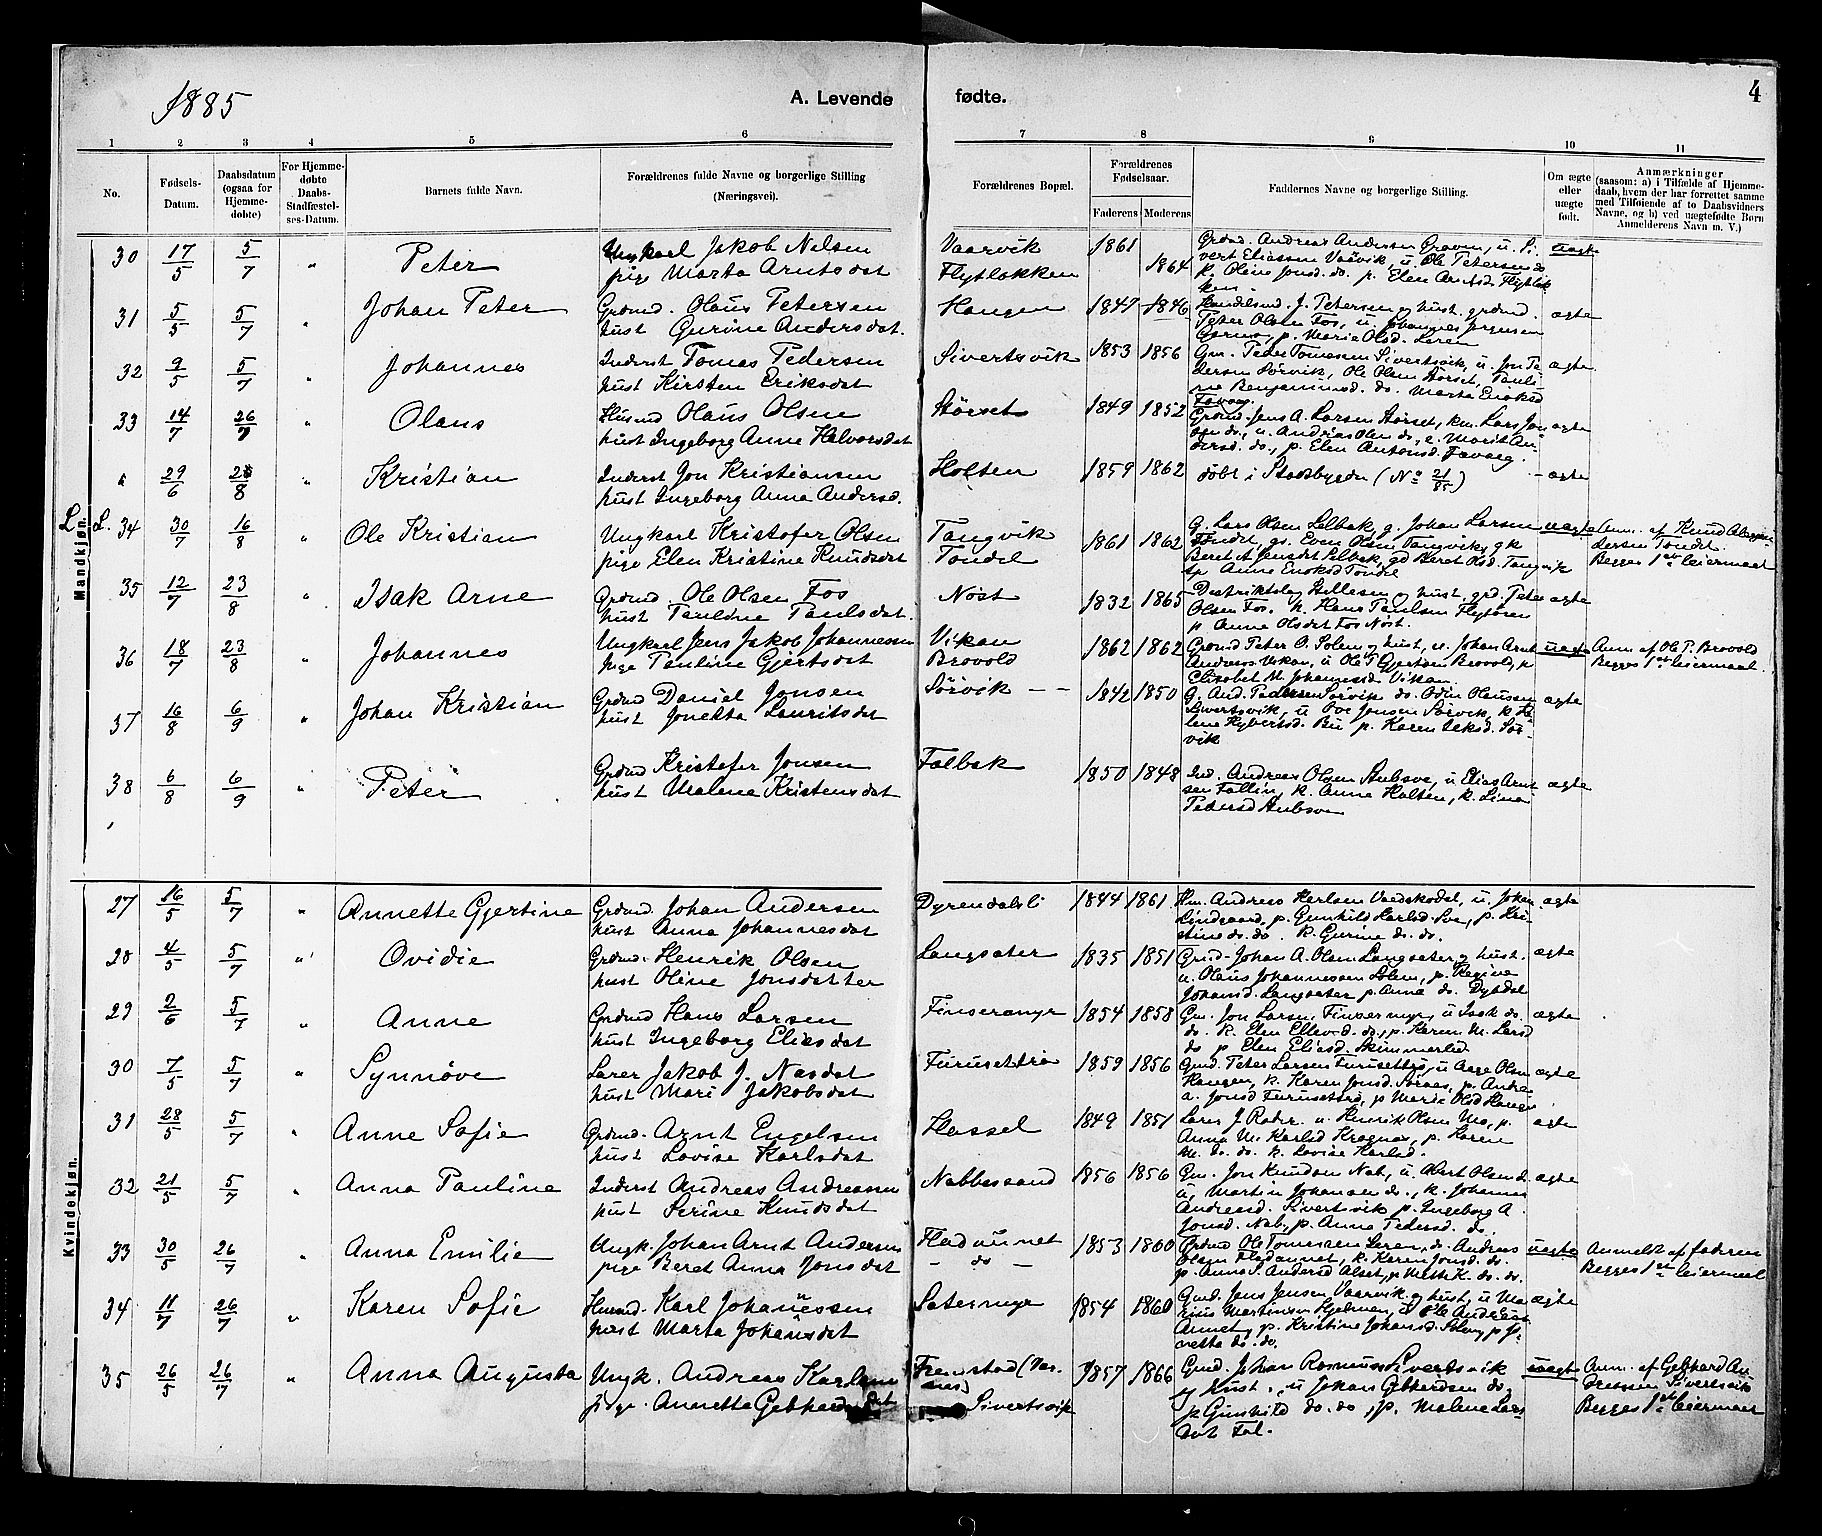 1885
A. Levende fødte.
4
1 2 3 4 5 6 7 8 9 10 11
No.
Fødsels-
Datum.
Daabsdatum
(ogsaa for
Hjemme-
døbte)
For Hjemme-
døbte
Daabs-
Stadfæstel-
ses-Datum.
Barnets fulde Navn.
Forældrenes fulde Navne og borgerlige Stilling
(Næringsvei).
Forældrenes Bopæl.
Forældrenes
Fødselsaar.
Faderens Moderens
Faddernes Navne og borgerlige Stilling.
Om ægte
eller
uægte
født.
Anmærkninger
(saasom: a) i Tilfælde af Hjemme-
daab, hvem der har forrettet samme
med Tilføiende af to Daabsvidners
Navne, og b) ved uægtefødte Børn
Anmelderens Navn m. V.)
Mandkjøn.
30 17/5 5/7 " Peter
Ungkarl Jakob Nelsen
pige Marta Arntsdat
Vaarvik
Flytlokken
1861 1864
Grdmd. Andreas Andersen Graven, u. Si-
vert Eliassen Vaavik, u Ole Petersen do
k. Oline Jonsd. do. p. Elen Arntsd. Flytlok
ken.
uægte
31 5/5 5/7 " Johan Peter
Grdmd. Olaus Petersen
hust Gurine Andersdat.
Haugen
1847 1846
Handelsmd. J. Petersen og hust. grdmd.
Peter Olsen Fos, u. Johannes Jørgensen
p. Marie Olsd. Leren
ægte
32 9/5 5/7 " Johannes
Inderst Tomas Pedersen
hust Kirsten Eriksdat
Sivertsvik
1853 1856
Gm. Peder Tomasen Sivertsvik, u. Jon Pe
dersen Sørvik, Ole Olsen Størset, Pauli
ne Benjaminsd. do. Marta Enoksd
ægte
33 14/7 26/7 " Olaus
Husmd Olaus Olsen
hust Ingeborg Anne Halvorsdat
Størset
1849 1852
Grdmd. Jens A. Larsen Størset, km. Lars Jon
sen do., u. Andreas Olsen do., e. Marit An-
dersd. do., p. Elen Antonsd.
ægte
" 29/6 23/8 " Kristian
Inderst Jon Kristiansen
hust Ingeborg Anna Andersd.
Holten
1859 1862
døbt i Stadsbygden (No 21/85)
- ægte
L. L. 34 30/7 16/8 " Ole Kristian
Ungkarl Kristofer Olsen
pige Elen Kristine Knudsdat
Tangvik
Tøndel
1861 1862
G. Lars Olsen Selbak, g. Johan Larsen
Tøndel, gs. Even Olsen Tangvik, gk
Beret A Jensdat Selbak, gd Beret Olsd. Tangvik
tp Anne Enoksd Tøndel
uægte
Anm. af Knud
dersen Tøndel.
Begges 1ste Leiermaal
35 12/7 23/8 " Isak Arne
Grdmd. Ole Olsen Fos
hust Pauline Paulsdat.
Nøst
1832 1865
Distriktslæg Hillesen og hust. grd. Peter
Olsen Fos, k. Hans Paulsen Flytøren
p Anne Olsdat Fos Nøst.
ægte
36 18/7 23/8 " Johannes
Ungkarl Jens Jakob Johannessen
pige Pauline Gjertsdat
Vikan
Brovold
1862 1862
Grdmd Peter O. Solem og hust, u. Johan Arnt
Andreas Vikan, u Ole P Gjertsen Brovold, p
Elisabet M Johannesd Vikan
uægte
Anm af Ole P. Brovold
Begges 1ste leiermaal.
37 16/8 6/9 " Johan Kristian
Grdmd Daniel Jonsen
hust Jonetta Lauritsdat
Sørvik - -
1842 1850
G. And. Pedersen Sørvik do. Odin Olaussen
Sivertsvik, u Ove Jensen Sørvik, k
p. Karen Isaksd. Sør-
vik
ægte
38 6/8 6/9 " Peter
Grdmd Kristofer Jonsen
hust Malene Kristensdat
Falbak
1850 1848
Ind. Andreas Olsen Stubsve, u Elias Arnt
sen Fallin, k. Anne Holten, k. Lina
Pedersd Stubsve
ægte
Kvindekjøn.
27 16/5 5/7 " Annette Gjertine
Grdmd. Johan Andersen
hust Anna Johannesdat
Dyrendalsli
1844 1861
Hm. Andreas Karlsen u. Johan
Lindgaard, p. Gunhild Karlsd. p. Kri
stine do. do. k. Gurine do. do.
ægte
28 4/5 5/7 " Ovidie
Grdmd. Henrik Olsen
hust Oline Jonsdatter
Langsæter
1835 1851
Grdmd. Johan A. Olsen Langsæter og hust.
u. Olaus Johannessen Solem, p. Regine
Johansd. Langsæter p. Anne do. Dyrdal
ægte
29 2/6 5/7 " Anne
Grdmd Hans Larsen
hust Ingeborg Eliasdat
Finsermyr
1854 1858
Gm. Jon Larsen Finsermyr, u Isak do.
do. k. Elen Ellevd. do., p. Karen M. Larsd
do p. Elen Eliasd. Skimmerlid
ægte
30 7/5 5/7 " Synnøve
Lærer Jakob J. Nasdat
hust Mari Jakobsdat
Furusettrø
1859 1856
Gmd. Peter Larsen Furusettrø, u Aage Olsen
Haugen, k. Karen Jonsd. p. Andre
a. Jonsd Furusettrø, p Maria Olsd Haugen
ægte
31 28/5 5/7 " Anne Sofie
Grdmd. Arnt Engelsen
hust Lovise Karlsdat
Hassel
1849 1851
Lars J. u. Henrik Olsen Mo, p.
Anna M. Karlsd p. Karen
M. do. do. k. Lovise Karlsd.
ægte
32 21/5 5/7 " Anna Pauline
Inderst Andreas Andreassen
hust Serine Knudsdat
Nabbesand
1856 1856
Gm. Jon Knudsen Nab, u. Albert Olsen do
u, Martin Johansen do., k. Johanna
Andreasd. Sivertsvik p. Ingeborg A
Jonsd. Nab, p. Anne Pedersd. do.
ægte
33 30/5 26/7 " Anna Emilie
Ungk. Johan Arnt Andersen
pige Beret Anna Jonsdat
Fladaunet
- do -
1853 1860
Grdmd Ole Tomessen Leren, do. Andreas
Olsen Fladaunet, k. Karen Jonsd. do.
p. Anna S. Andersd Alset, p. Mette K. do. do.
uægte
Anmeldt af faderen
Begges 1ste leiermaal
34 11/7 26/7 " Karen Sofie
Husmd. Karl Johannessen
hust Marta Johansdat
Satermyr
1854 1860
Gmd. Jens Jensen Vaarvik og hust, u Ma
rius Martinsen u Ole Andreas
Aunet, p. Kristine Johansd. p Jo-
netta do. do.
ægte
35 26/5 26/7 " Anna Augusta
Ungk. Andreas Karlsen
pige. Annetta Gebhardsdat
Fremstad (Var-
nes)
Sivertsvik
1857 1866
Gmd. Johan Rasmussen Sivertsvik
og hust., u Johan Gebhardsen do,
p Gunhild do. do, p. Malene Lars
dat Fol.
uægte
Anm. af Gebhard An
dresen Sivertsvik
Begges 1ste leiermaal